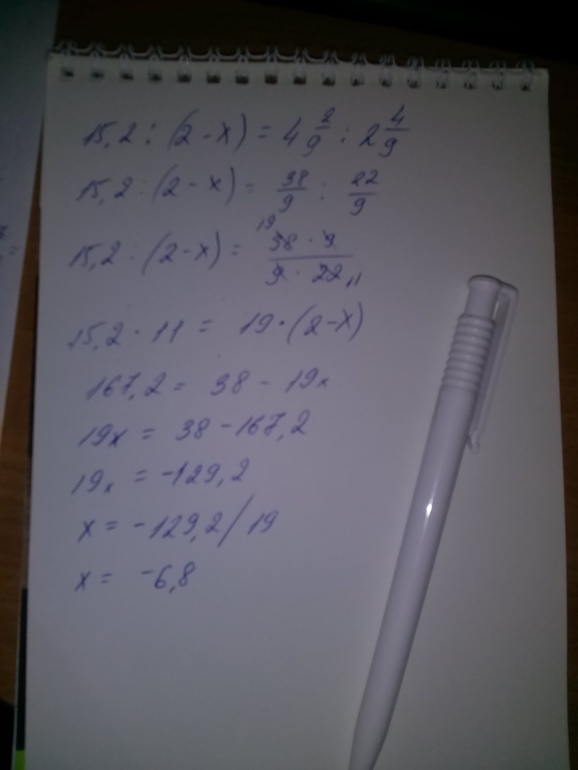 15,2 : (2 - x) = 4 2/9 : 2 4/9
15,2 : (2 - x) = 38/9 : 22/9
15,2 : (2 - x) = 19 38 · 9 / 9 · 22 11
15,2 · 11 = 19 · (2 - x)
167,2 = 38 - 19x
19x = 38 - 167,2
19x = -129,2
x = -129,2/19
x = -6,8